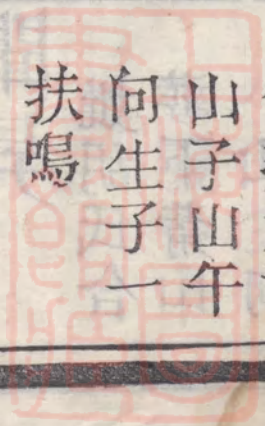 山子山午
向生子一
扶鳴